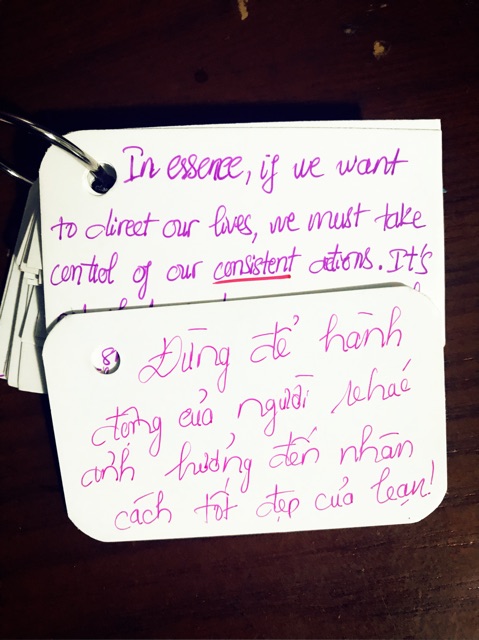 In essence, if we want
to direct our lives, we must take
control of our consistent actions. It's
8
Đừng để hành
động của người khác
ảnh hưởng đến nhân
cách tốt đẹp của bạn!